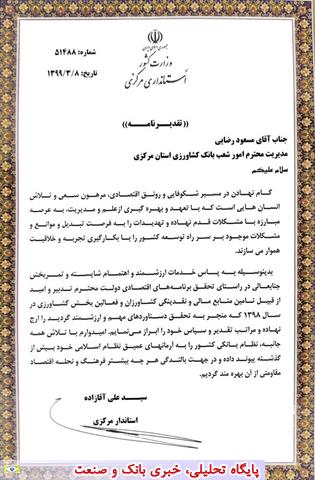 جمهوری اسلامی ایران
وزارت کشور
استانداری مرکزی
شماره: ۵۱۴۸۸
تاریخ: ۱۳۹۹/۳/۸
((تقدیرنامه))
جناب آقای مسعود رضایی
مدیریت محترم امور شعب بانک کشاورزی استان مرکزی
سلام علیکم
گام نهادن در مسیر شکوفایی و رونق اقتصادی، مرهون سعی و تلاش
انسان هایی است که با تعهد و بهره گیری از علم و مدیریت، به عرصه
مبارزه با مشکلات قدم نهاده و تهدیدات را به فرصت تبدیل و موانع و
مشکلات موجود بر سر راه توسعه کشور را با بکارگیری تجربه و خلاقیت
هموار می سازند.
بدینوسیله به پاس خدمات ارزشمند و اهتمام شایسته و ثمربخش
جنابعالی در راستای تحقق برنامه‌های اقتصادی دولت محترم تدبیر و امید
از قبیل تامین منابع مالی و نقدینگی کشاورزان و فعالین بخش کشاورزی در
سال ۱۳۹۸ که منجر به تحقق دستاوردهای مهم و ارزشمند گردید را ارج
نهاده و مراتب تقدیر و سپاس خود را ابراز می‌نمایم. امیدوارم با تلاش همه
جانبه، نظام بانکی کشور را به آرمانهای عمیق نظام اسلامی خود بیش از
گذشته پیوند داده و در جهت بالندگی هر چه بیشتر فرهنگ و نحله اقتصاد
مقاومتی از آن بهره مند گردیم.
سید علی آقازاده
استاندار مرکزی
پایگاه تحلیلی، خبری بانک و صنعت